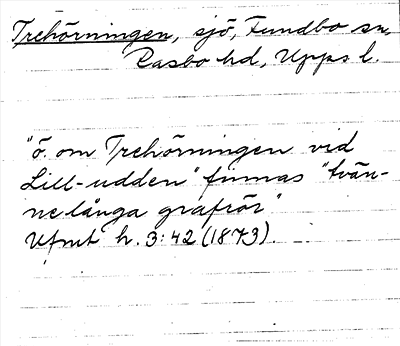 Trehörningen, sjö, Fundbo sn,
Rasbo hd, Upps l.
"ö. om Trehörningen vid
Lill-udden" finnas "tvän-
ne långa grafrör"
Ufmt h. 3:42 (1873).